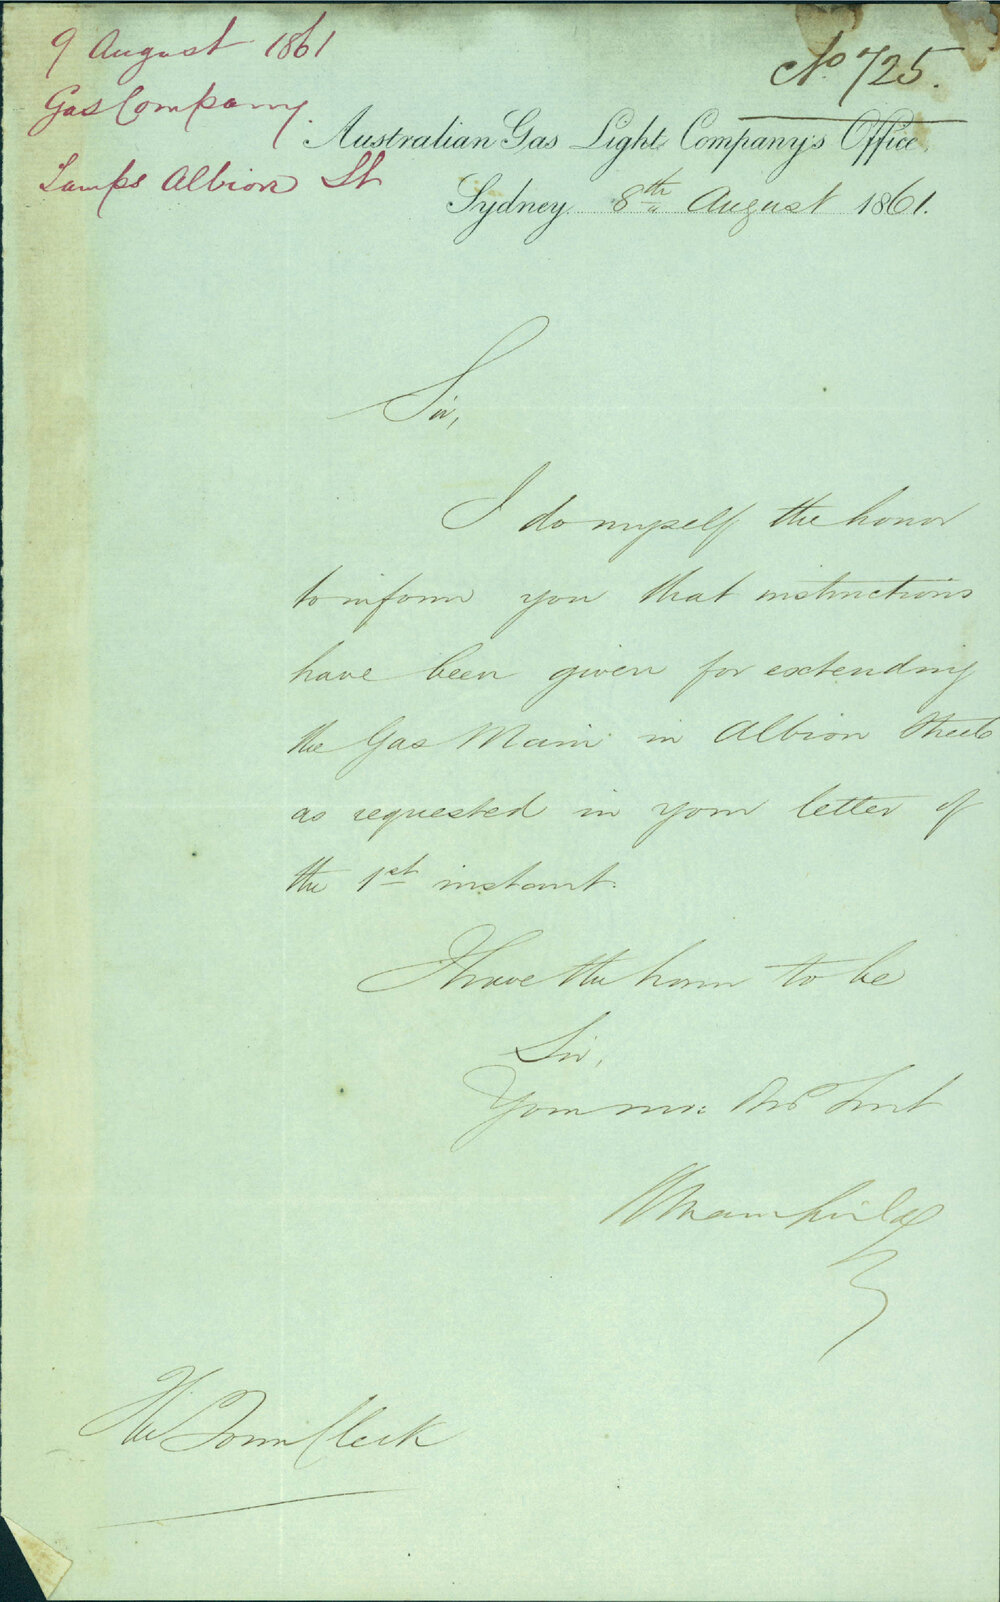 9 August 1861
Gas Company
Lamps Albion St
No 725.
Australian Gas Light Company's Office
Sydney 8th August 1861.
Sir,
I do myself the honor
to inform you that instructions
have been given for extending
the Gas Main in Albion Street
as requested in your letter of
the 1st instant.
I have the honor to be
Sir,
Your mo: Obt Servt
The Town Clerk